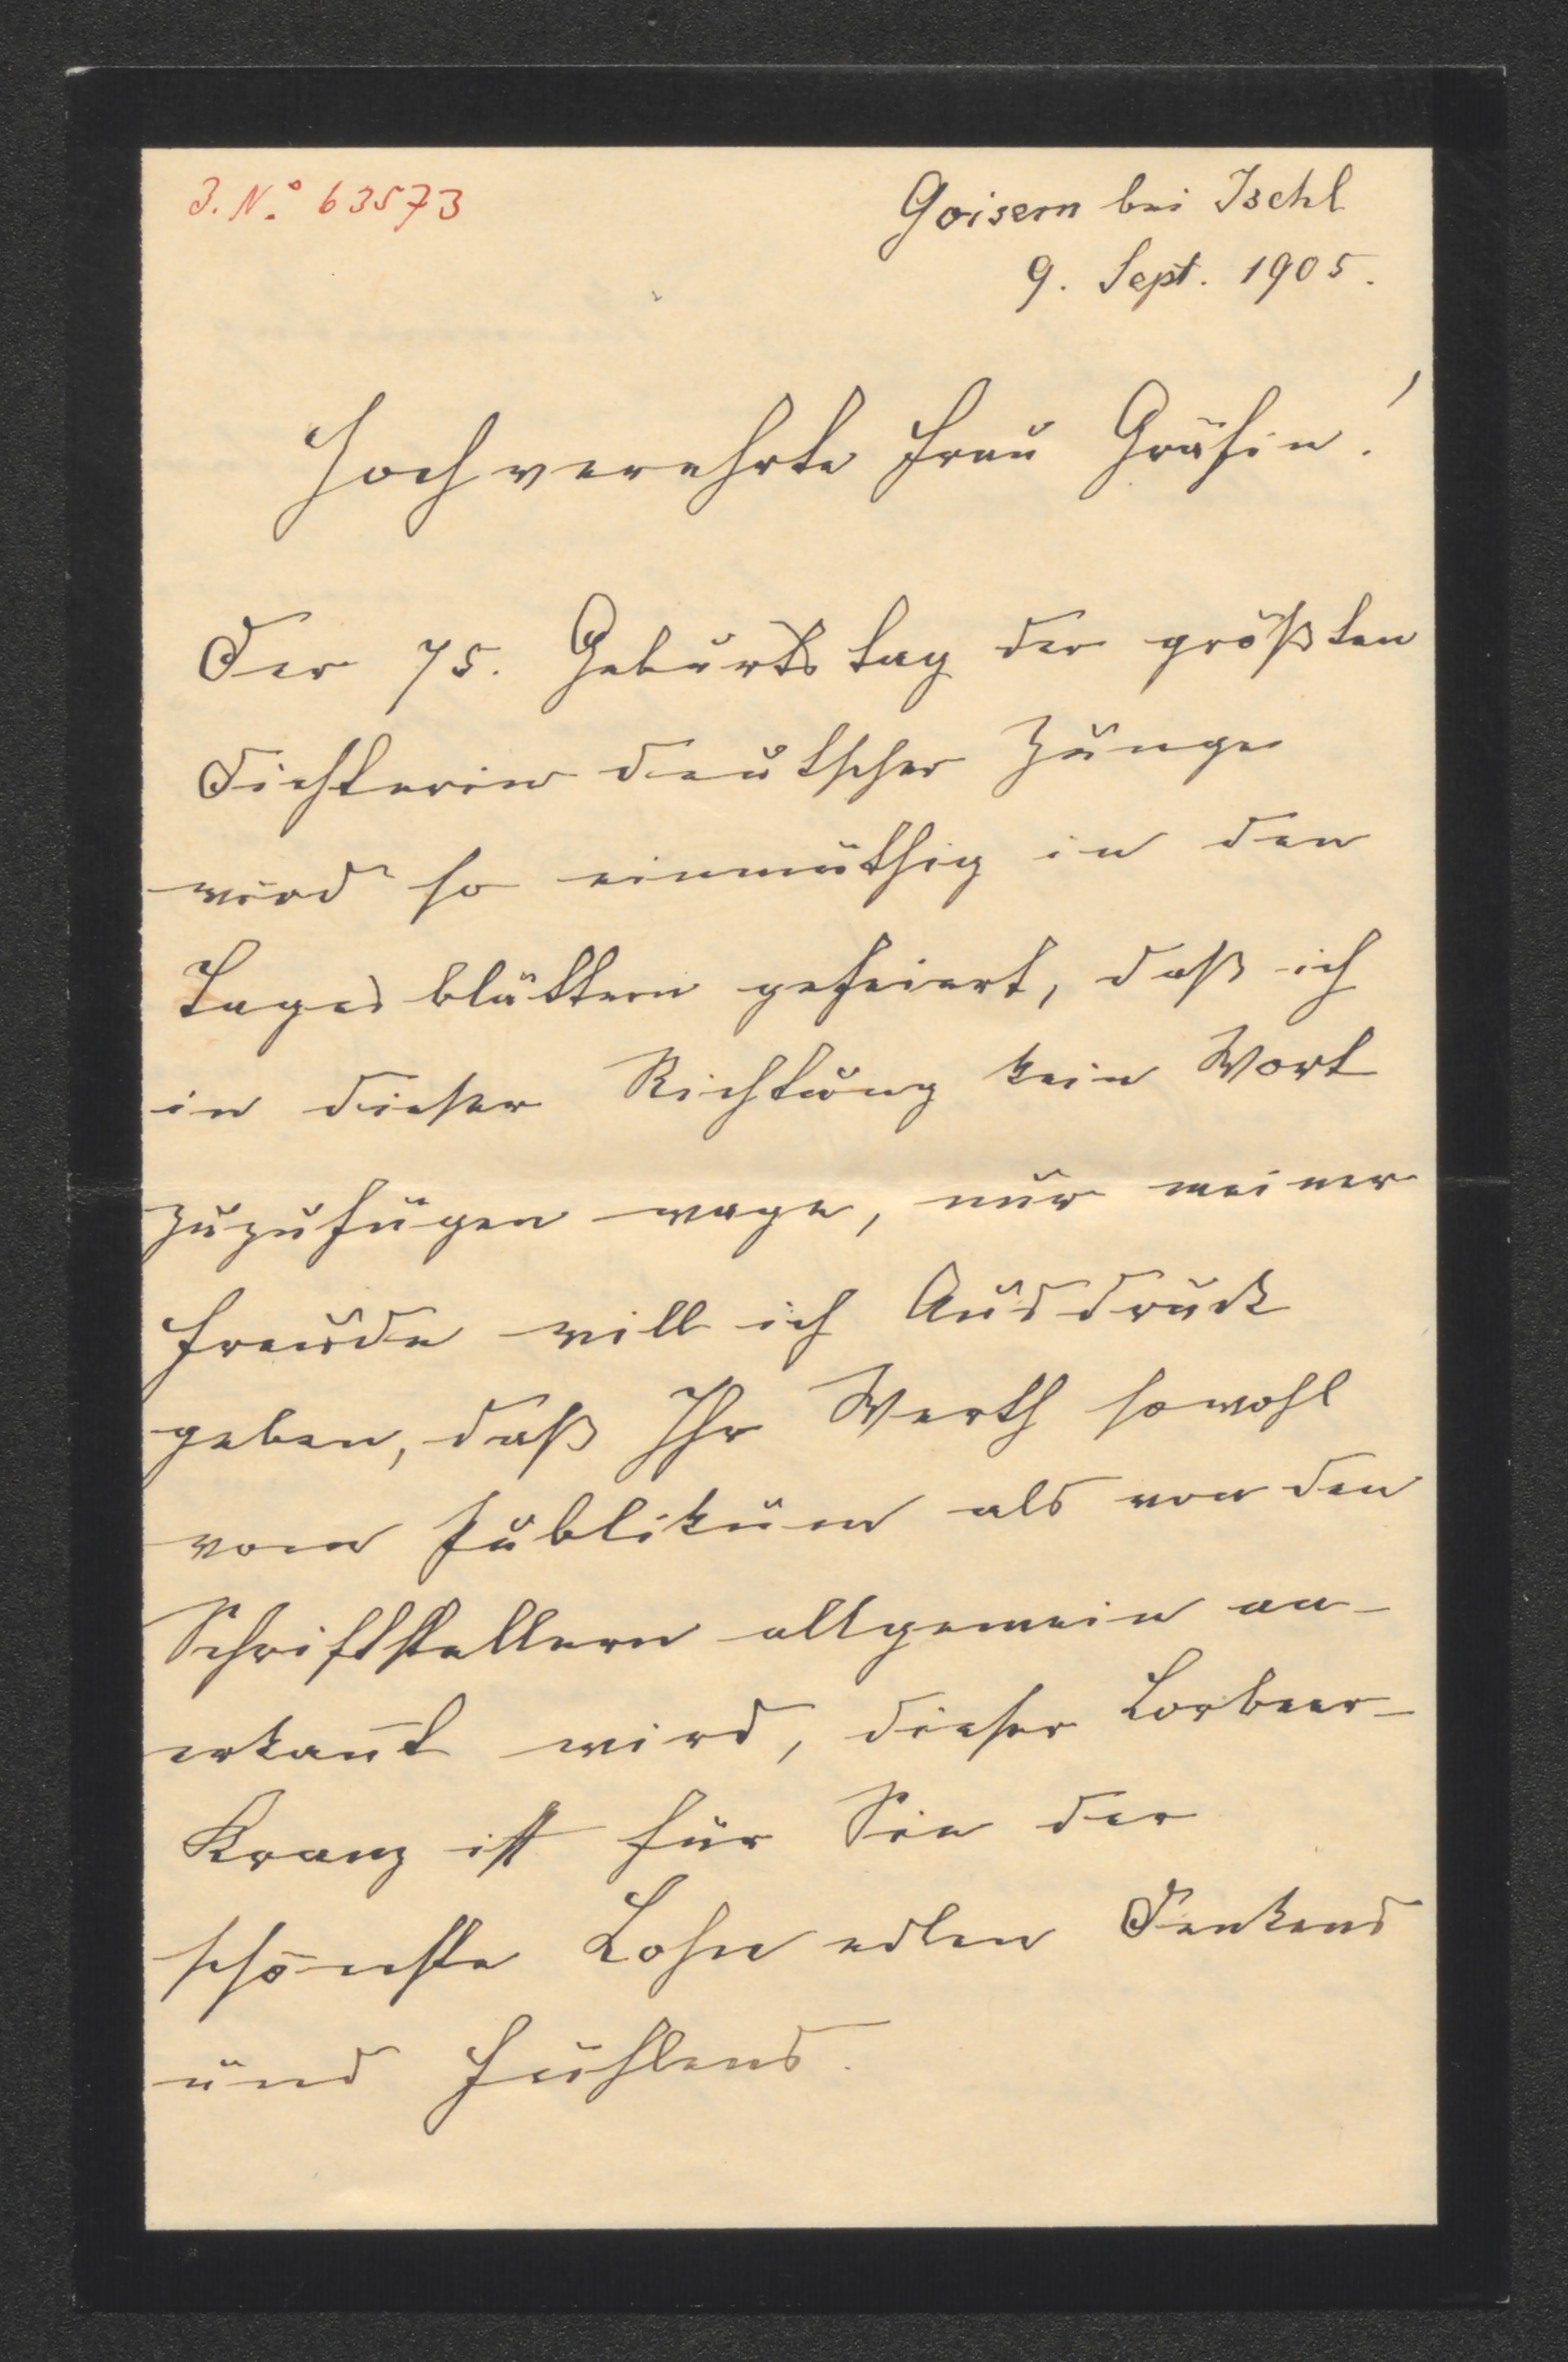 J. N.° 63573
Goisern bei Ischl
9. Sept. 1905.
Hochverehrte Frau Gräfin!
Der 75. Geburtstag der größten
Dichterin deutscher Zunge
wird so einmüthig in den
Tagesblättern gefeiert, daß ich
in dieser Richtung kein Wort
zuzufügen wage, nur meiner
Freude will ich Ausdruck
geben, daß Ihr Werth sowohl
vom Publikum als von den
Schriftstellern allgemein an-
erkan̅t wird, dieser Lorbeer-
Kranz ist für Sie der
schönste Lohn edlen Denkens
und Fühlens.